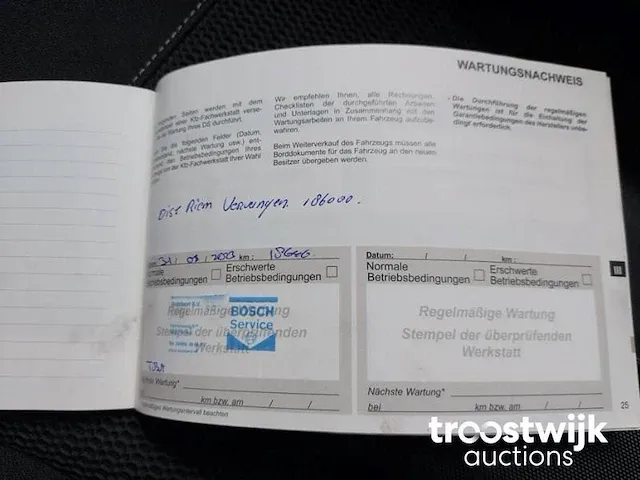 WARTUNGSNACHWEIS
Seiten werden mit dem
einer Kfz-Fachwerkstatt
Wartung Ihres DS durchführt.
Sie die folgenden Felder (Datum,
nächste Wartung usw.)
den Betriebsbedingungen Ihres
der Kfz-Fachwerkstatt Ihrer Wahl
Wir empfehlen Ihnen, alle Rechnungen,
Checklisten der durchgeführten Arbeiten
und Unterlagen in Zusammenhang mit den
Wartungsarbeiten an Ihrem Fahrzeug aufzube-
wahren.
Beim Weiterverkauf des Fahrzeugs müssen alle
Borddokumente für das Fahrzeug an den neuen
Besitzer übergeben werden.
- Die Durchführung der regelmäßigen
Wartungen ist für die Einhaltung der
Garantiebedingungen des Herstellers unbe-
dingt erforderlich.
Dist Riem Vervangen 186000.
km:
Normale
Betriebsbedingungen
Erschwerte
Betriebsbedingungen
Regelmäßige Wartung
Stempel der überprüfenden
Werkstatt
BOSCH
Service
Nächste Wartung*
km bzw. am / /
Wartungsintervall beachten
Datum: / / km:
Normale
Betriebsbedingungen
Erschwerte
Betriebsbedingungen
Regelmäßige Wartung
Stempel der überprüfenden
Werkstatt
Nächste Wartung*
bei km bzw. am / /
25
troostwijk
auctions